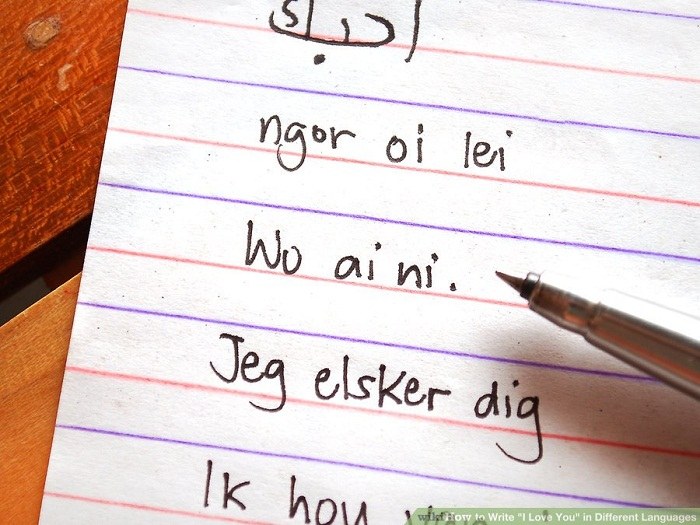 احبك
ngor oi lei
Wo ai ni.
Jeg elsker dig
Ik hou
wikiHow to Write "I Love You" in Different Languages